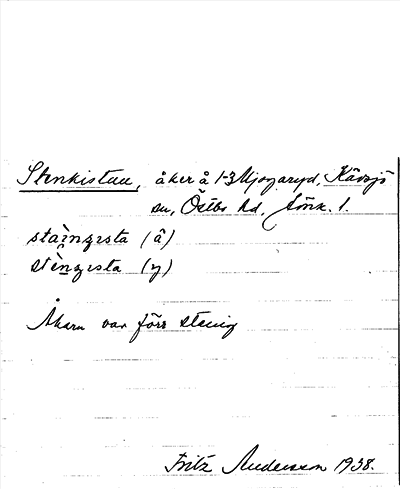 Stenkistan, åker å 1-3 Mjogaryd, Kävsjö
sn, Östbo hd, Jönk. l.
staìngesta (å)
stèngesta (y)
Åkern var förr stenig
Fritz Andersson 1938.